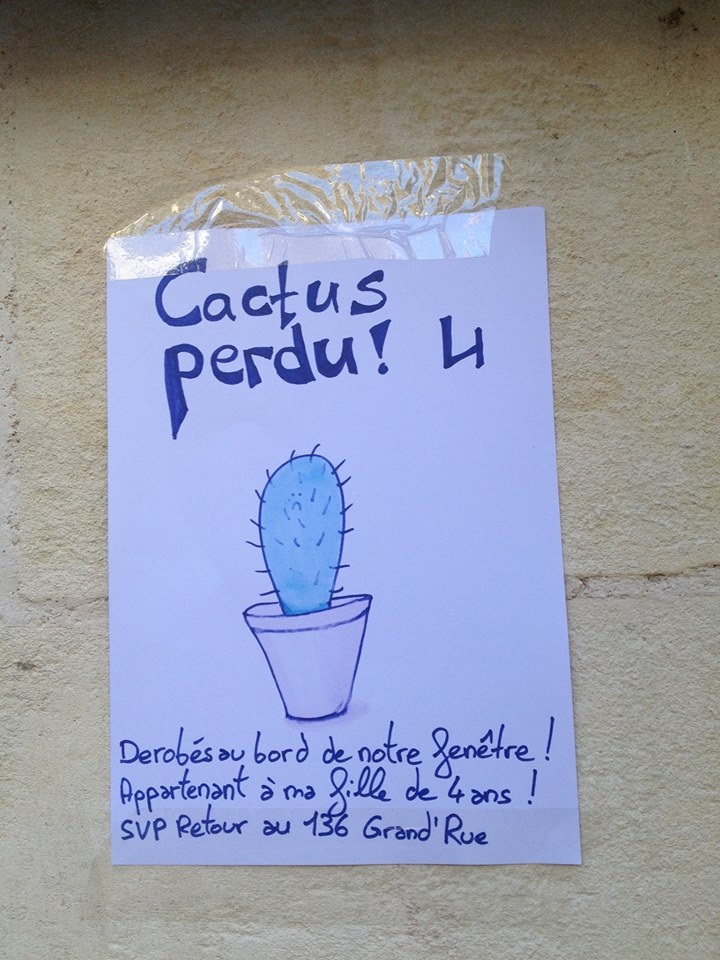 Cactus
perdu! 4
Derobés au bord de notre fenêtre !
Appartenant à ma fille de 4 ans !
SVP Retour au 136 Grand'Rue